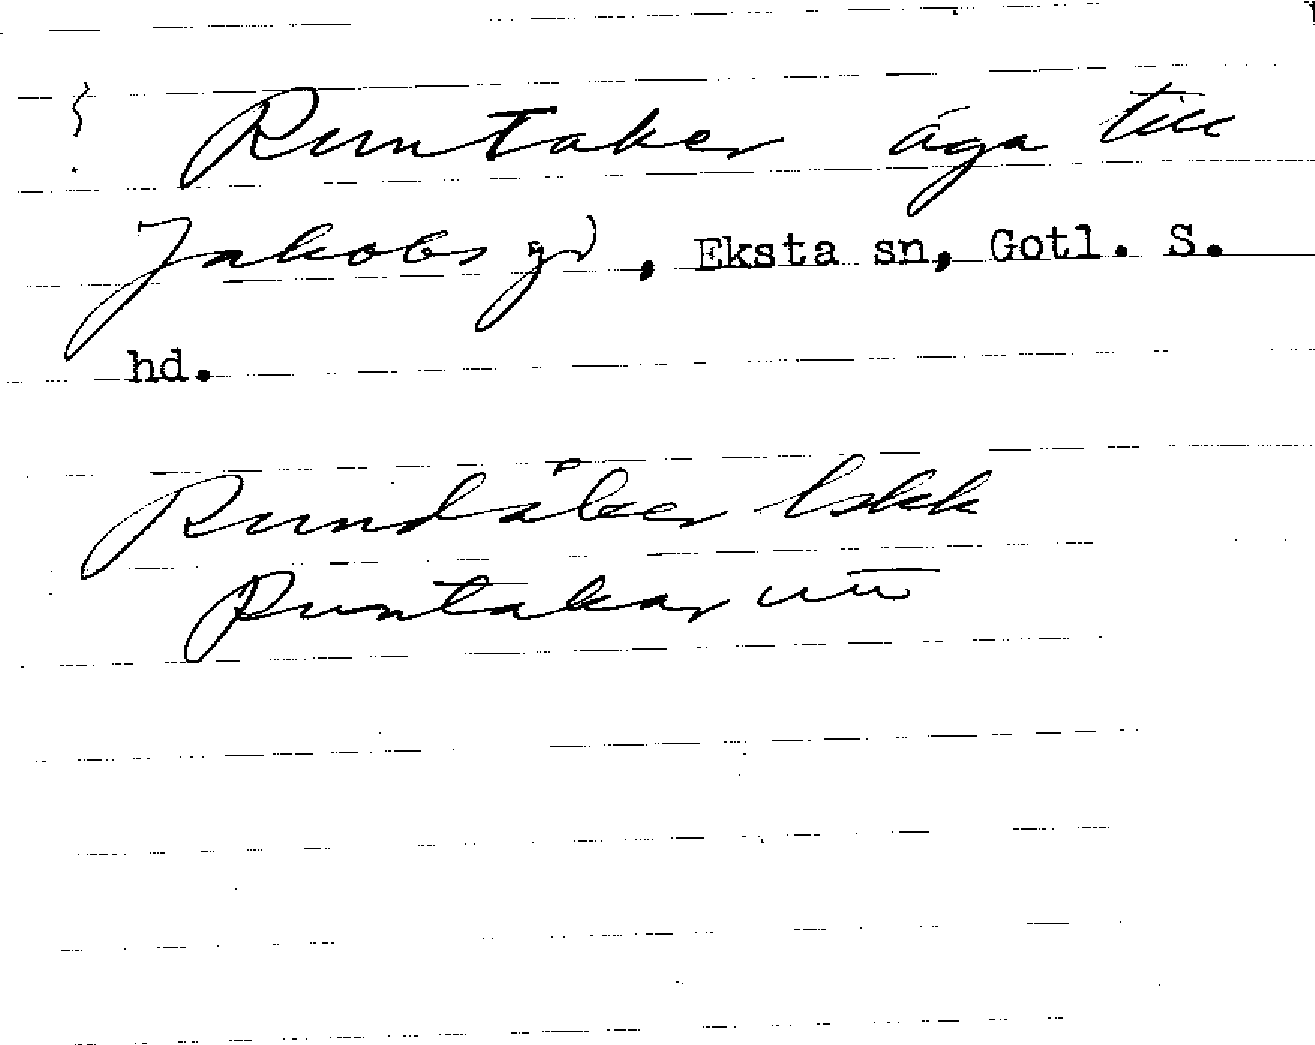 Runtaker äga till
Jakobs gd, Eksta sn, Gotl. S.
hd.
Rundåker
Runtakar